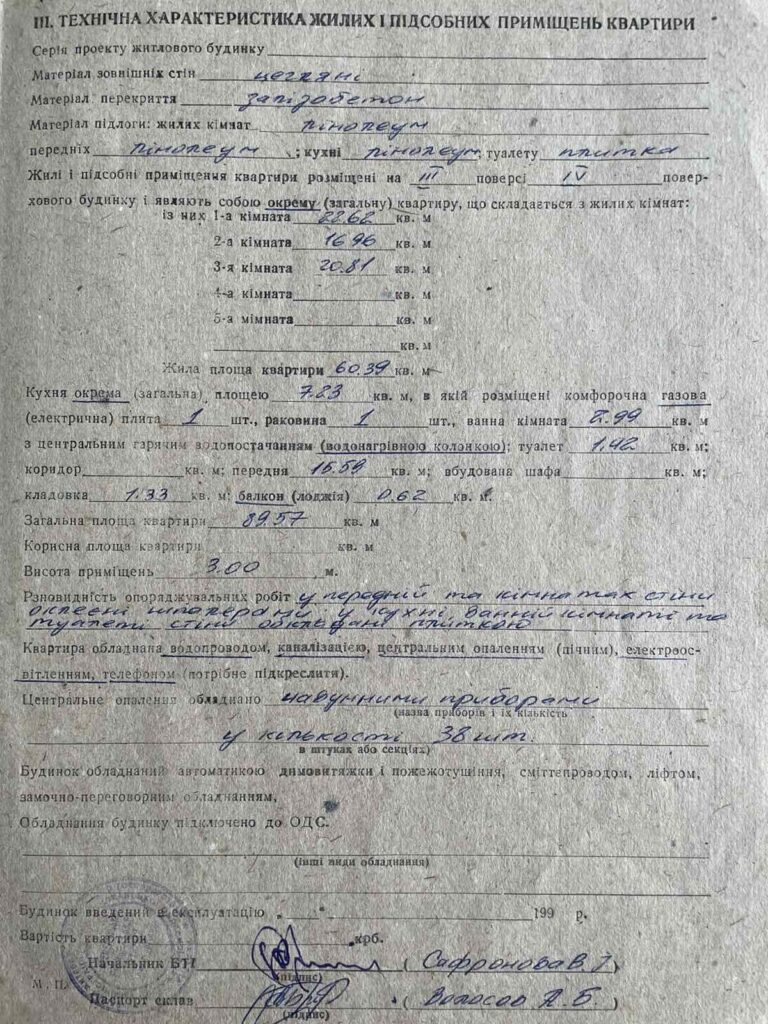 III. ТЕХНІЧНА ХАРАКТЕРИСТИКА ЖИЛИХ І ПІДСОБНИХ ПРИМІЩЕНЬ КВАРТИРИ
Серія проекту житлового будинку
Матеріал зовнішніх стін цегляні
Матеріал перекриття залізобетон
Матеріал підлоги: жилих кімнат лінолеум
передніх лінолеум ; кухні лінолеум; туалету плитка
Жилі і підсобні приміщення квартири розміщені на III поверсі IV повер-
хового будинку і являють собою окрему (загальну) квартиру, що складається з жилих кімнат:
із них 1-а кімната 22.62 кв. м
2-а кімната 16.96 кв. м
3-я кімната 20.81 кв. м
4-а кімната кв. м
5-а мімната кв. м
кв. м
Жила площа квартири 60.39 кв. м
Кухня окрема (загальна) площею 7.23 кв. м, в якій розміщені комфорочна газова
(електрична) плита 1 шт., раковина 1 шт., ванна кімната 2.99 кв. м
з центральним гарячим водопостачанням (водонагрівною колонкою); туалет 1.42 кв. м;
коридор кв. м; передня 15.59 кв. м; вбудована шафа кв. м;
кладовка 1.33 кв. м; балкон (лоджія) 0.62 кв. м.
Загальна площа квартири 89.57 кв. м
Корисна площа квартири кв. м
Висота приміщень 3.00 м.
Різновидність опоряджувальних робіт у передній та кімнатах стіни
оклеєні шпалерами, у кухні ванній кімнаті та
туалеті стіни обкладані плиткою
Квартира обладнана водопроводом, каналізацією, центральним опаленням (пічним), електроос-
вітленням, телефоном (потрібне підкреслити).
Центральне опалення обладнано чавунними приборами
(назва приборів і їх кількість
у кількості 38 шт.
в штуках або секціях)
Будинок обладнаний автоматикою димовитяжки і пожежотушіння, сміттєпроводом, ліфтом,
замочно-переговорним обладнанням,
Обладнання будинку підключено до ОДС.
(інші види обладнання)
Будинок введений в експлуатацію „ “ 199 р.
Вартість квартири крб.
Начальник БТІ ( Сафронова В. )
(підпис)
М. П.
Паспорт склав ( Волосов А. Б. )
(підпис)